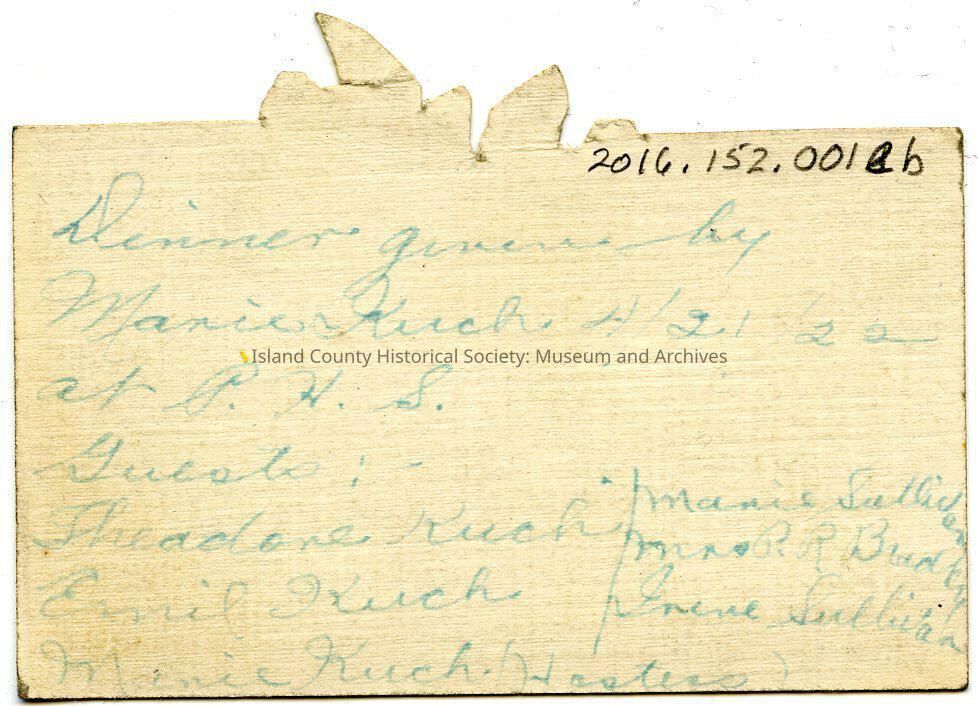 2016.152.001ab
Dinner given by
Marie Kuch 4/21/22
Island County Historical Society: Museum and Archives
at P. H. S.
Guests:-
Theadore Kuch
Emil Kuch
Marie Kuch (Hostess)
Marie Sullivan
Mrs P. R
Irene Sullivan